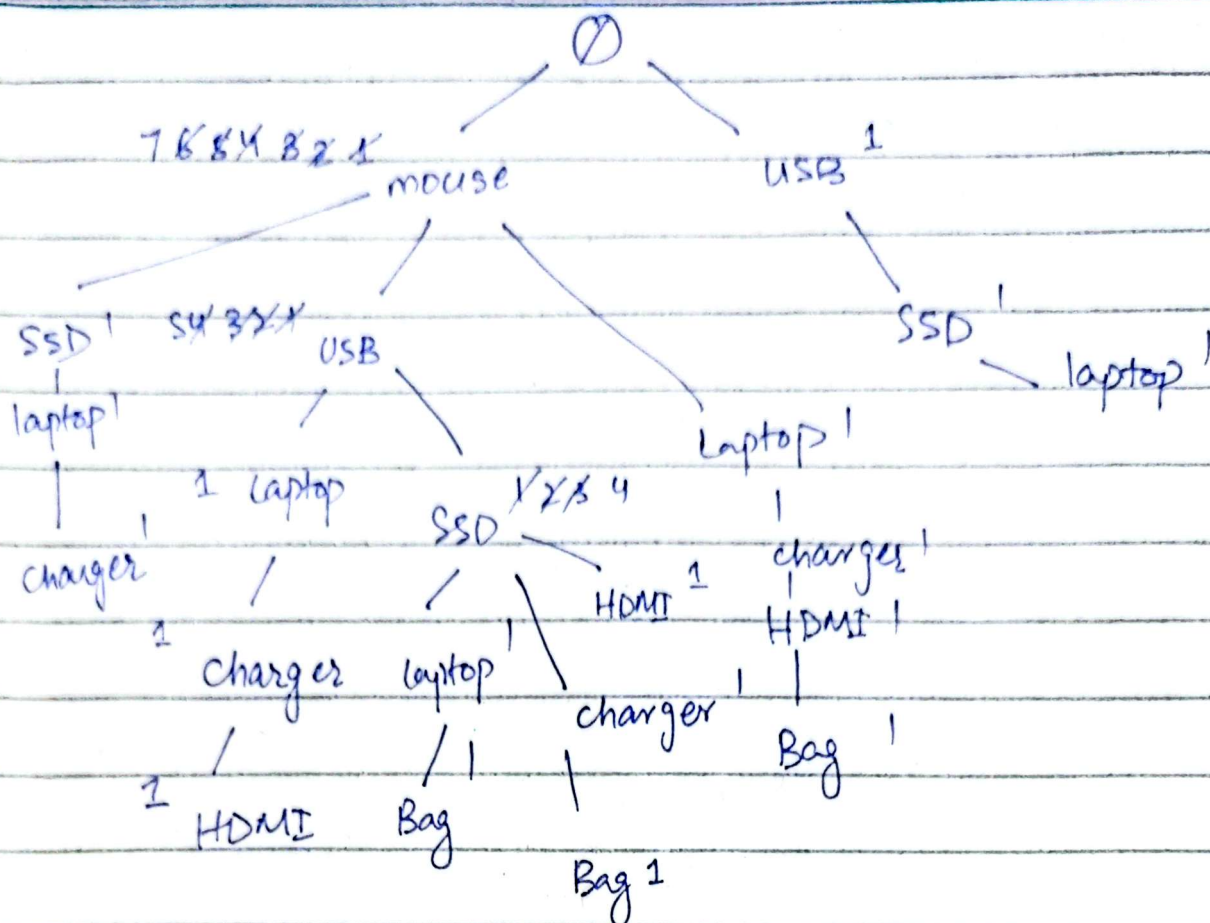 Ø
7 6 5 4 3 2 1 mouse
USB 1
SSD 1
5 4 3 2 1 USB
SSD 1
laptop 1
laptop 1
Laptop 1
1 Laptop
SSD 1 2 3 4
charger 1
HDMI 1
charger 1
HDMI 1
1 Charger
laptop 1
charger 1
Bag 1
1 HDMI
Bag 1
Bag 1